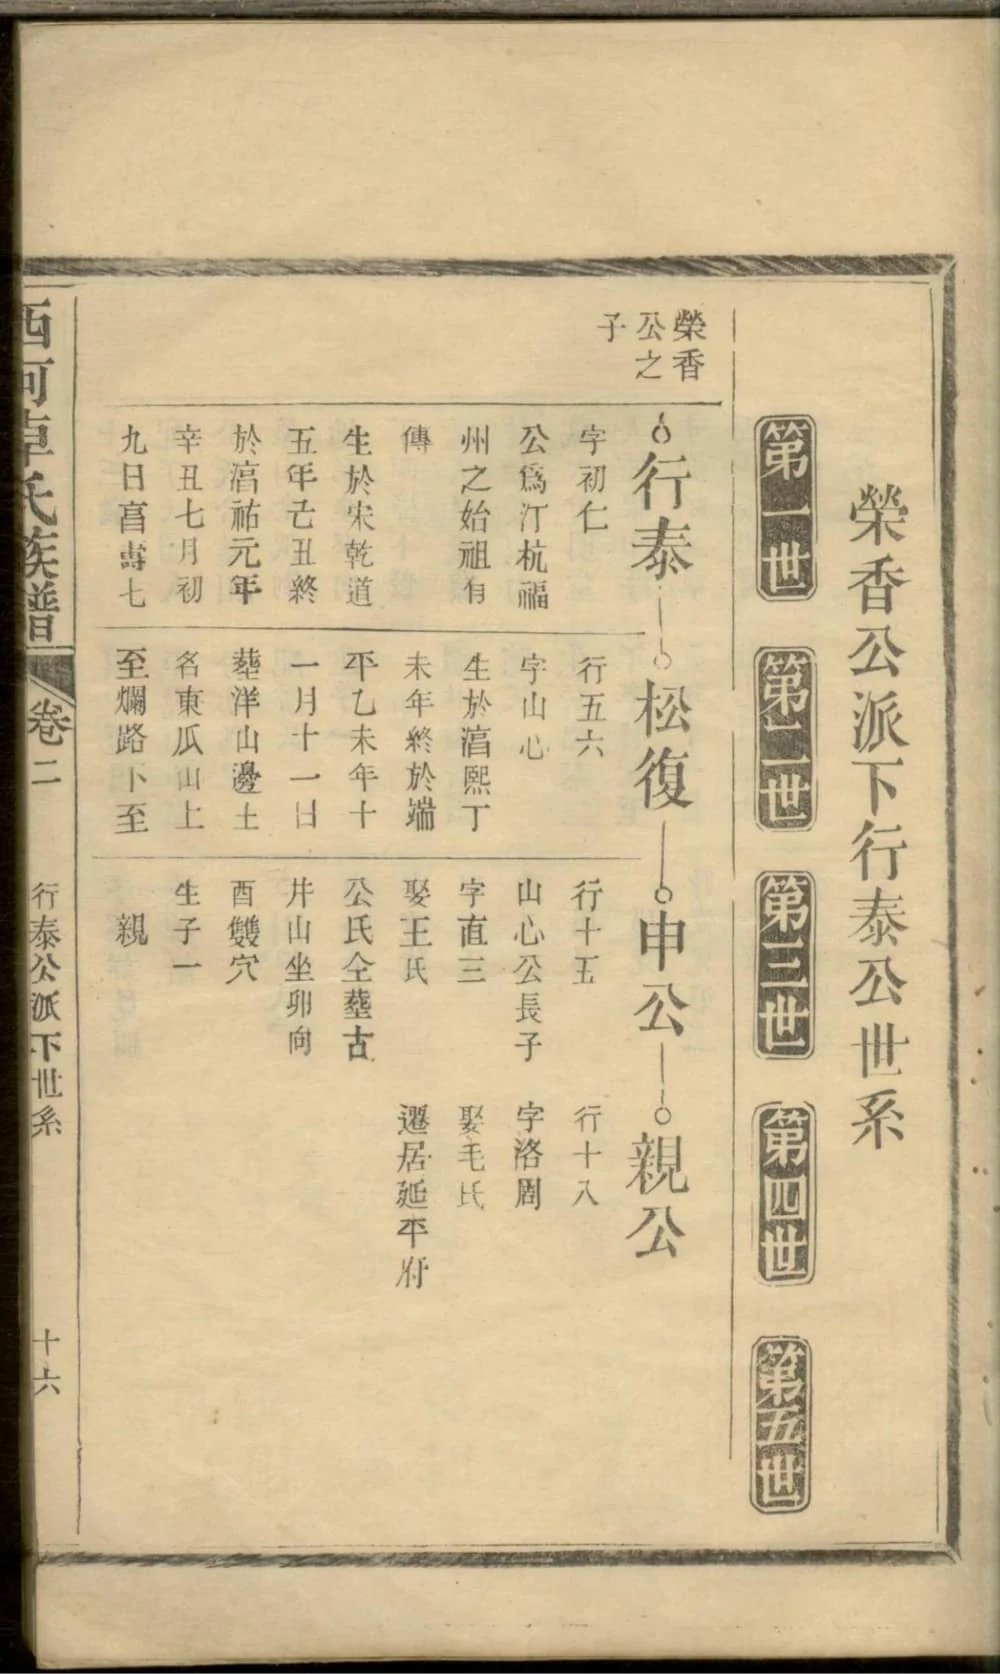 榮香公派下行泰公世系
第一世
第二世
第三世
第四世
第五世
榮香
公之
子
行泰
字初仁
公爲汀杭福
州之始祖有
傳
生於宋乾道
五年己丑終
於淳祐元年
辛丑七月初
九日享壽七
松復
行五六
字山心
生於淳熙丁
未年終於端
平乙未年十
一月十一日
塟洋山邊土
名東瓜山上
至爛路下至
申公
行十五
山心公長子
字直三
娶王氏
公氏仝塟古
井山坐卯向
酉雙穴
生子一
親
親公
行十八
字洛周
娶毛氏
遷居延平府
西河卓氏族譜
卷二
行泰公派下世系
十六